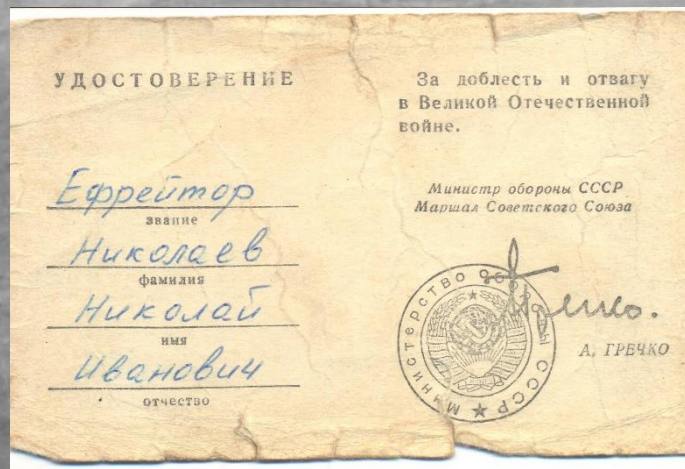 УДОСТОВЕРЕНИЕ
Ефрейтор
звание
Николаев
фамилия
Николай
имя
Иванович
отчество
За доблесть и отвагу
в Великой Отечественной
войне.
Министр обороны СССР
Маршал Советского Союза
Гречко.
А. ГРЕЧКО
МИНИСТЕРСТВО ОБОРОНЫ СССР